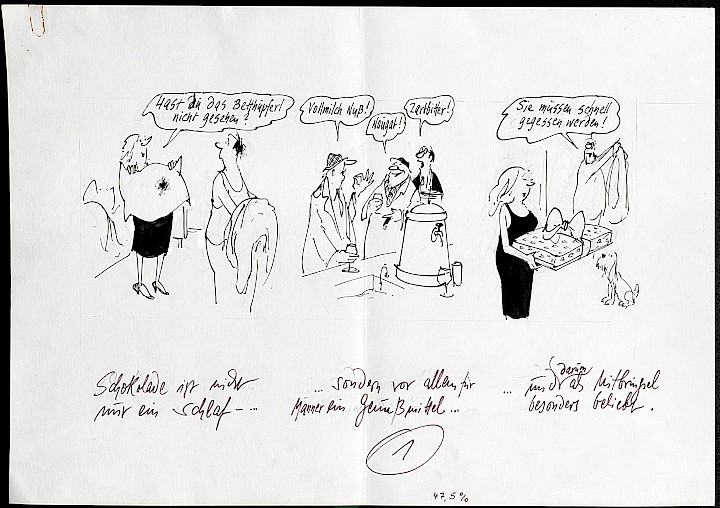 Hast du das Betthupferl
nicht gesehen?
Vollmilch Nuß!
Nougat!
Zartbitter!
Sie müssen schnell
gegessen werden!
Schokolade ist nicht
nur ein Schlaf-...
... sondern vor allem für
Männer ein Genußmittel...
darum
... und als Mitbringsel
besonders beliebt.
1
47,5%